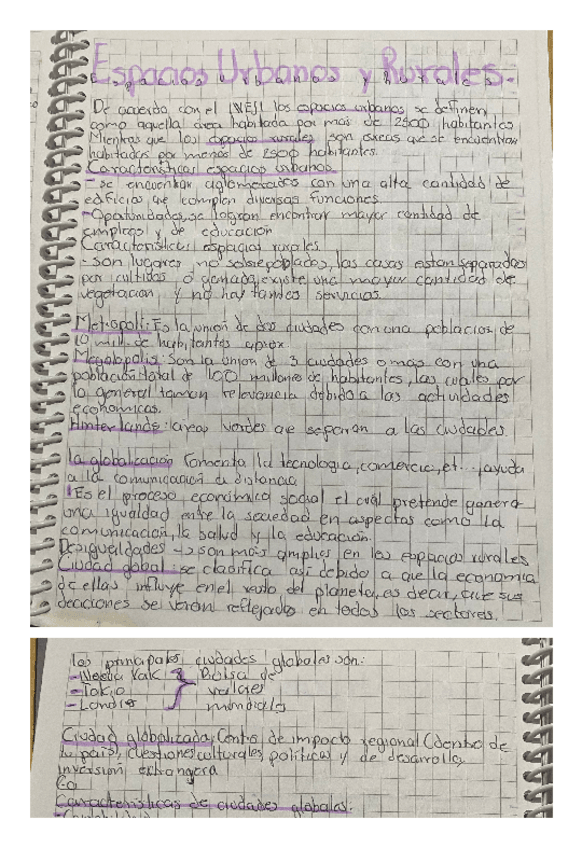 Espacios Urbanos y Rurales.
De acuerdo con el INEGI los espacios urbanos se definen
como aquella area habitada por más de 2500 habitantes
Mientras que los espacios rurales son areas que se encuentran
habitadas por menos de 2500 habitantes.
Características espacios urbanos
- se encuentran aglomerados con una alta cantidad de
edificios que cumplen diversas funciones.
- Oportunidades, se logran encontrar mayor cantidad de
empleos y de educación
Característic: espacios rurales.
- son lugares no sobrepoblados, las casas estan separadas
por cultidos o ganado, existe una mayor cantidad de
vegetacion y no hay tantos servicios.
Metropoli: Es la union de dos ciudades con una poblacion de
10 mill. de habitantes aprox.
Megalopolis: Son la union de 3 ciudades o mas con una
población total de 100 millones de habitantes, las cuales por
lo general toman relevancia debido a las actividades
economicas.
Hinterlands: areas verdes que separan a las ciudades.
la globalización fomenta la tecnologia, comercio, et... ayuda
a la comunicación a distancia
Es el proceso económico social el cual pretende genera
una igualdad entre la sociedad en aspectos como la
comunicación, la salud y la educación.
Desigualdades → son más amplios en los espacios rurales
Ciudad global: se clasifica asi debido a que la economia
de ellas influye en el resto del planeta, es decir, que sus
decisiones se veran reflejadas en todos los sectores.
las principales ciudades globales son:
- Nueva York } Bolsa de
- Tokio valores
- Londres mundiales
Ciudad globalizada: Centro de impacto regional (dentro de
tu pais), cuestiones culturales, politicas y de desarrollo
inversión extranjera
Ca
Caracteristicas de ciudades globales: